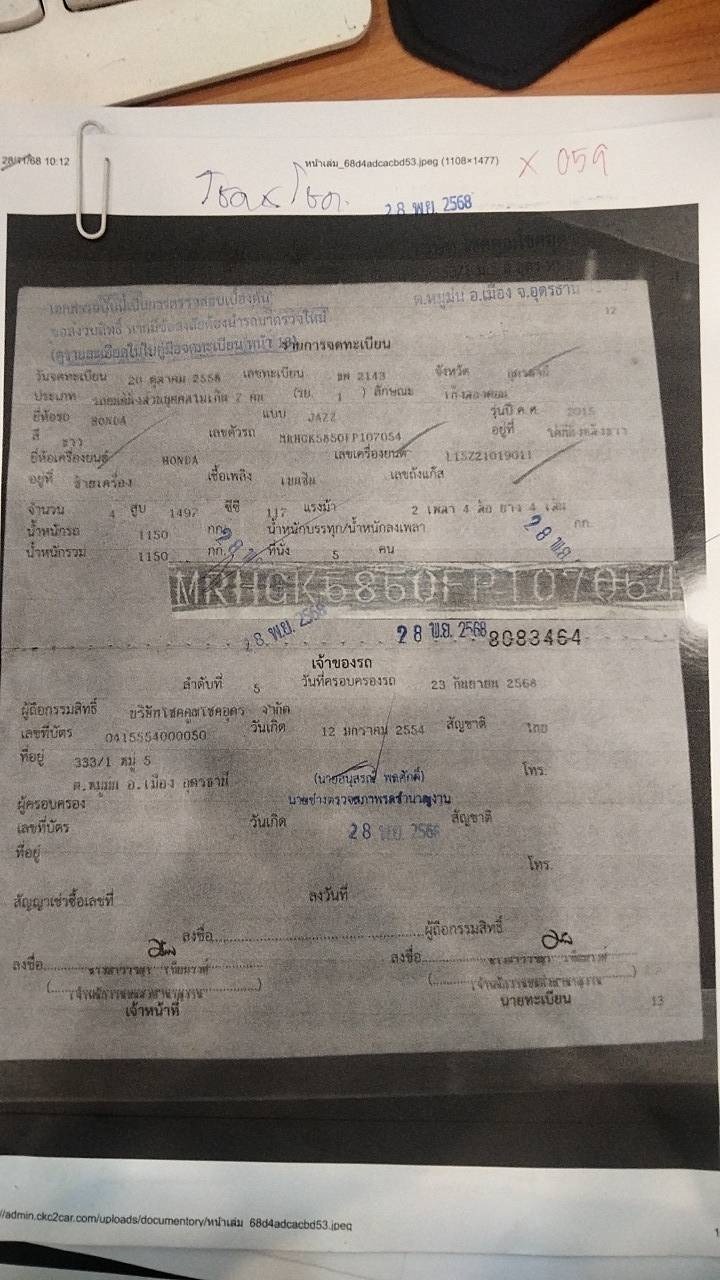 28/11/68 10:12
หน้าเล่ม_68d4adcacbd53.jpeg (1108×1477)
X 059
28 พ.ย. 2568
ต.หมูม่น อ.เมือง จ.อุดรธานี
12
เอกสารฉบับนี้เป็นการตรวจสอบเบื้องต้น
ขอสงวนสิทธิ์ หากมีข้อสงสัยต้องนำรถมาตรวจใหม่
(ดูรายละเอียดในใบคู่มือจดทะเบียน หน้า 18) รายการจดทะเบียน
วันจดทะเบียน 20 ตุลาคม 2558 เลขทะเบียน 2143 จังหวัด อุดรธานี
ประเภท รถยนต์นั่งส่วนบุคคลไม่เกิน 7 คน (รย. 1 ) ลักษณะ
ยี่ห้อรถ HONDA แบบ JAZZ รุ่นปี ค.ศ. 2015
สี ขาว เลขตัวรถ MRHGK5850FP107054 อยู่ที่
ยี่ห้อเครื่องยนต์ HONDA เลขเครื่องยนต์ L15Z21019011
อยู่ที่ ซ้ายเครื่อง เชื้อเพลิง เบนซิน เลขถังแก๊ส
จำนวน 4 สูบ 1497 ซีซี 117 แรงม้า 2 เพลา 4 ล้อ ยาง 4 เส้น
น้ำหนักรถ 1150 กก. น้ำหนักบรรทุก/น้ำหนักลงเพลา กก.
น้ำหนักรวม 1150 กก. ที่นั่ง 5 คน
28 พ.ย.
28 พ.ย.
MRHGK5850FP107054
28 พ.ย. 2568
28 พ.ย. 2568 8083464
เจ้าของรถ
ลำดับที่ 5 วันที่ครอบครองรถ 23 กันยายน 2568
ผู้ถือกรรมสิทธิ์ บริษัทโชคคูณโชคอุดร จำกัด
เลขที่บัตร 0415554000050 วันเกิด 12 มกราคม 2554 สัญชาติ ไทย
ที่อยู่ 333/1 หมู่ 5 โทร.
ต.หมูม่น อ.เมือง อุดรธานี
(นายอนุสรณ์ พลศักดิ์)
ผู้ครอบครอง นายช่างตรวจสภาพรถชำนาญงาน
เลขที่บัตร วันเกิด สัญชาติ
28 พ.ย. 2568
ที่อยู่ โทร.
สัญญาเช่าซื้อเลขที่ ลงวันที่
ลงชื่อ ผู้ถือกรรมสิทธิ์
ลงชื่อ ลงชื่อ
(เจ้าพนักงานขนส่งชำนาญงาน) (เจ้าพนักงานขนส่งชำนาญงาน)
เจ้าหน้าที่ นายทะเบียน 13
//admin.ckc2car.com/uploads/documentory/หน้าเล่ม_68d4adcacbd53.jpeg